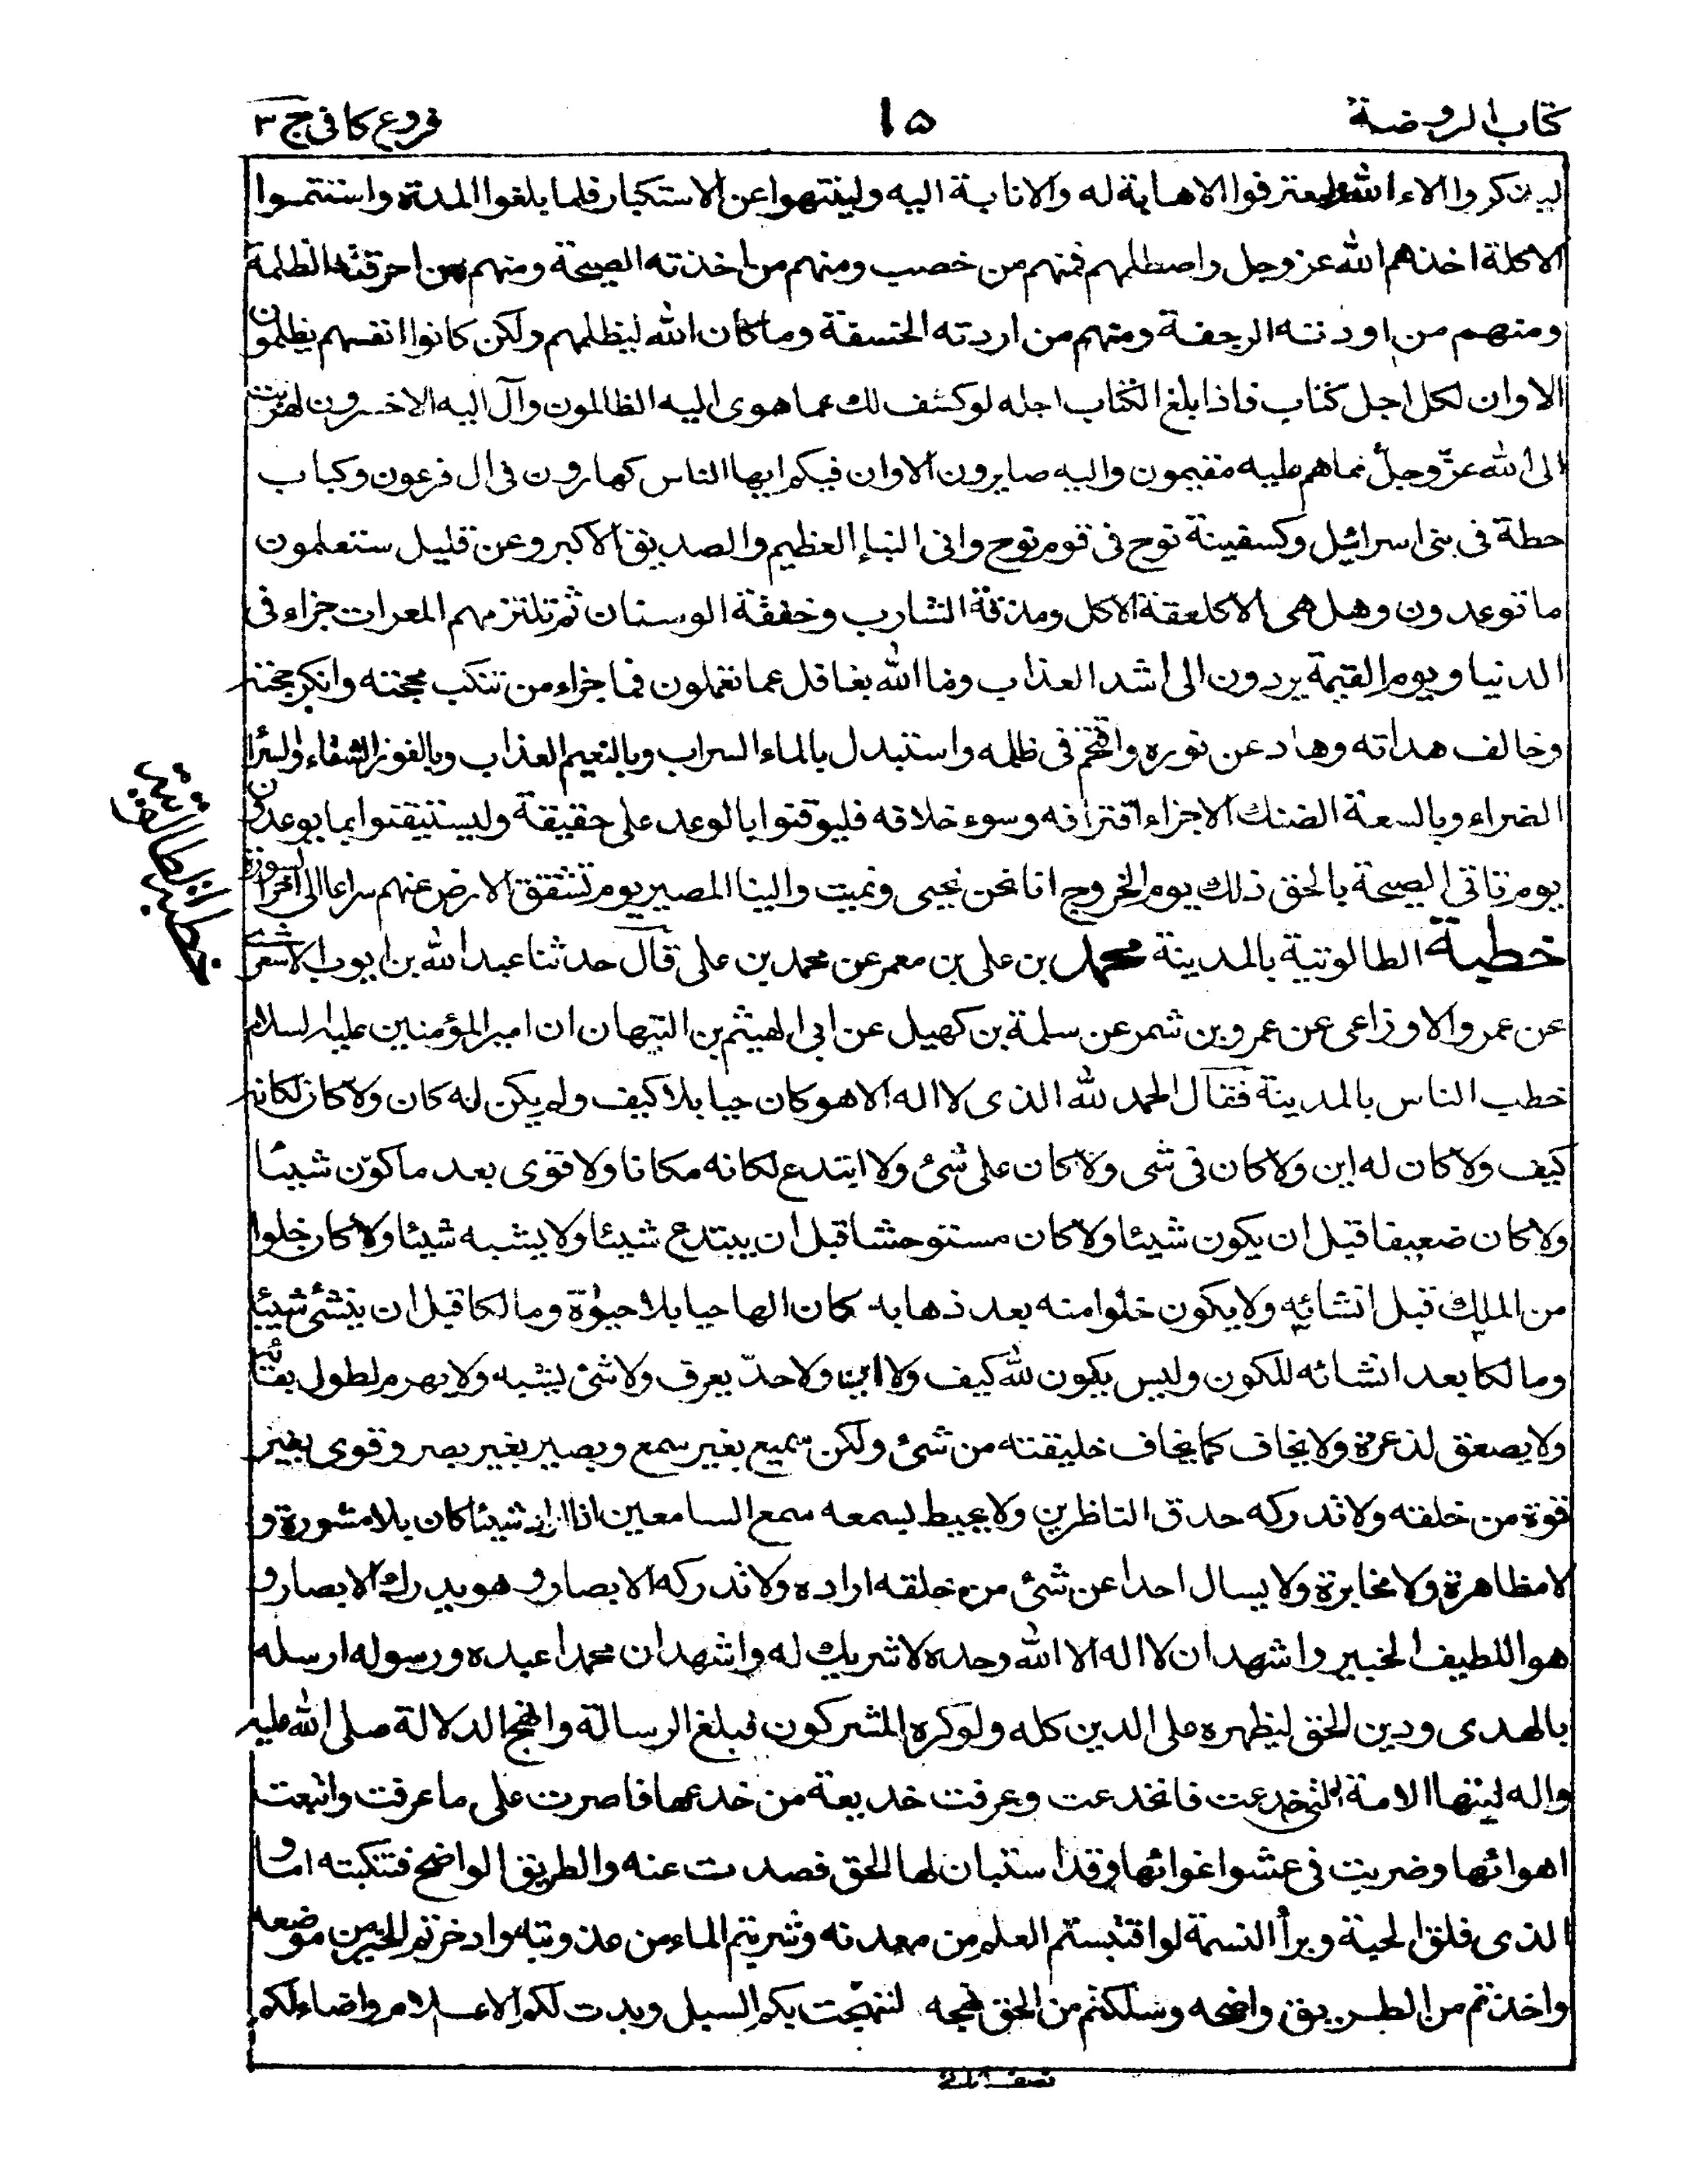 كتاب الروضة
١٥
فروع كافى ج ٣
ليذكروا الاء الله وليعترفوا الاهابة له والانابة اليه ولينتهوا عن الاستكبار فلما بلغوا المدة واستتموا
الاكلة اخذهم الله عز وجل واصطلمهم فمنهم من حصب ومنهم من اخذته الصيحة ومنهم من احرقته الظلمة
ومنهم من اودته الرجفة ومنهم من اردته الخسفة وما كان الله ليظلمهم ولكن كانوا انفسهم يظلمون
الاوان لكل اجل كتاب فاذا بلغ الكتاب اجله لو كشف لك عما هوى اليه الظالمون وآل اليه الاخسرون لهربت
الى الله عزّ وجلّ مماهم عليه مقيمون واليه صايرون الاوان فيكم ايها الناس كهارون فى ال فرعون وكباب
حطة فى بنى اسرائيل وكسفينة نوح فى قوم نوح وانى النبإ العظيم والصديق الاكبر وعن قليل ستعلمون
ما توعدون وهل هى الا كلعقة الاكل ومذقة الشارب وخفقة الوسنان ثم تلتزمهم المعرات جزاء فى
الدنيا ويوم القيمة يردون الى اشد العذاب وما الله بغافل عما تعملون فما جزاء من تنكب محجته وانكر حجته
وخالف هداته وحاد عن نوره واقتحم فى ظلمه واستبدل بالماء السراب وبالنعيم العذاب وبالفوز الشقاء وبالسراء
الضراء وبالسعة الضنك الاجزاء اقترافه وسوء خلافه فليوقنوا بالوعد على حقيقة وليستيقنوا بما يوعدون
يوم تاتى الصيحة بالحق ذلك يوم الخروج انا نحن نحيى ونميت والينا المصير يوم تشقق الارض عنهم سراعا الى اخر السورة
خطبة الطالوتية بالمدينة محمد بن على بن معمر عن محمد بن على قال حدثنا عبد الله بن ايوب الاشعرى
خطبة الطالوتية
عن عمرو الاوزاعى عن عمرو بن شمر عن سلمة بن كهيل عن ابى الهيثم بن التيهان ان امير المؤمنين عليه السلام
خطب الناس بالمدينة فقال الحمد لله الذى لا اله الا هو كان حيا بلا كيف ولم يكن له كان ولا كان لكانه
كيف ولا كان له اين ولا كان فى شى ولا كان على شئ ولا ابتدع لكانه مكانا ولا قوى بعد ما كوّن شيئا
ولا كان ضعيفا قبل ان يكون شيئا ولا كان مستوحشا قبل ان يبتدع شيئا ولا يشبه شيئا ولا كان خلوا
من الملك قبل انشائه ولا يكون خلوا منه بعد ذهابه كان الها حيا بلا حيوة ومالكا قبل ان ينشئ شيئا
ومالكا بعد انشائه للكون وليس يكون لله كيف ولا اين ولا حدّ يعرف ولا شئ يشبه ولا يهرم لطول بقائه
ولا يصعق لذعرة ولا يخاف كما يخاف خليقته من شئ ولكن سميع بغير سمع وبصير بغير بصر وقوى بغير
قوة من خلقه ولا تدركه حدق الناظرين ولا يحيط بسمعه سمع السامعين اذا اراد شيئا كان بلا مشورة و
لا مظاهرة ولا مخابرة ولا يسال احدا عن شئ من خلقه اراده ولا تدركه الابصار وهو يدرك الابصار و
هو اللطيف الخبير واشهد ان لا اله الا الله وحده لا شريك له واشهد ان محمدا عبده ورسوله ارسله
بالهدى ودين الحق ليظهره على الدين كله ولو كره المشركون فبلغ الرسالة وانهج الدلالة صلى الله عليه
واله ليتها الامة التى خدعت فانخدعت وعرفت خديعة من خدعها فاصرت على ما عرفت واتبعت
اهوائها وضربت فى عشوا غوائها وقد استبان لها الحق فصدت عنه والطريق الواضح فتنكبته اما و
الذى فلق الحبة وبرأ النسمة لو اقتبستم العلم من معدنه وشربتم الماء من عذوبته وادخرتم الخير من موضعه
واخذتم من الطريق واضحه وسلكتم من الحق نهجه لنهجت بكم السبل وبدت لكم الاعلام واضاء لكم